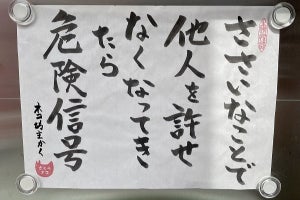 ささいなことで
他人を許せ
なくなってき
たら
危険信号